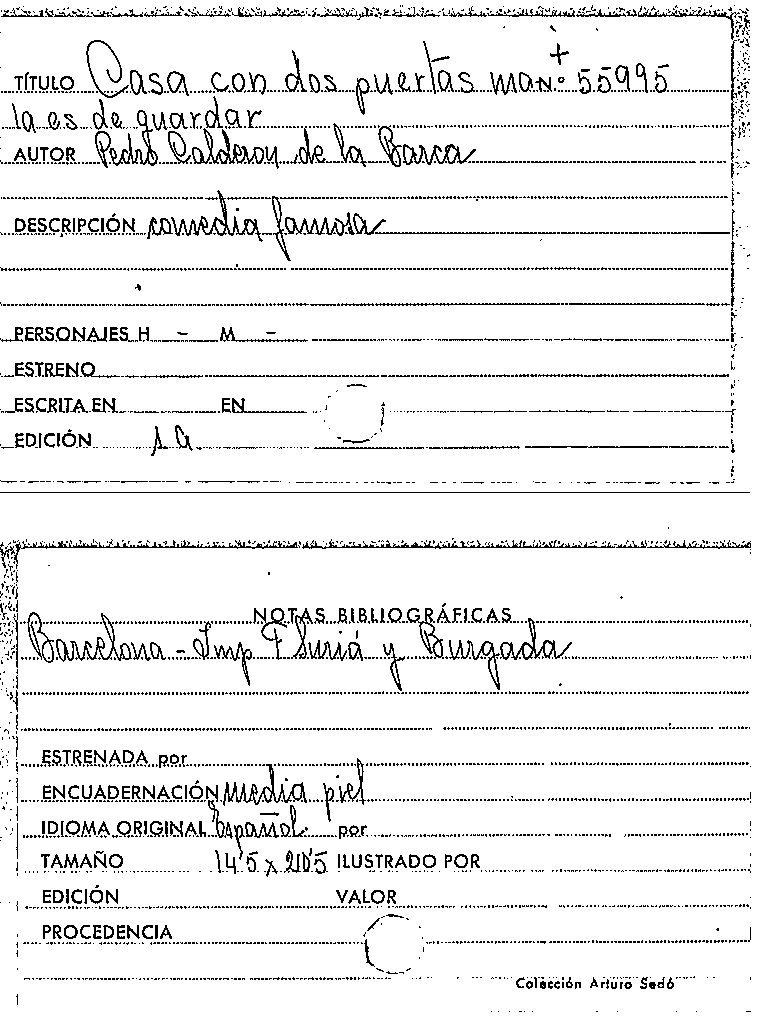 +
TÍTULO Casa con dos puertas ma N.º 55995
la es de guardar
AUTOR Pedro Calderon de la Barca
DESCRIPCIÓN comedia famosa
PERSONAJES H - M -
ESTRENO
ESCRITA EN EN
EDICIÓN 1a.
NOTAS BIBLIOGRÁFICAS
Barcelona - Imp F Suriá y Burgada
ESTRENADA por
ENCUADERNACIÓN media piel
IDIOMA ORIGINAL Español por
TAMAÑO 14'5 x 20'5 ILUSTRADO POR
EDICIÓN VALOR
PROCEDENCIA
Colección Arturo Sedó